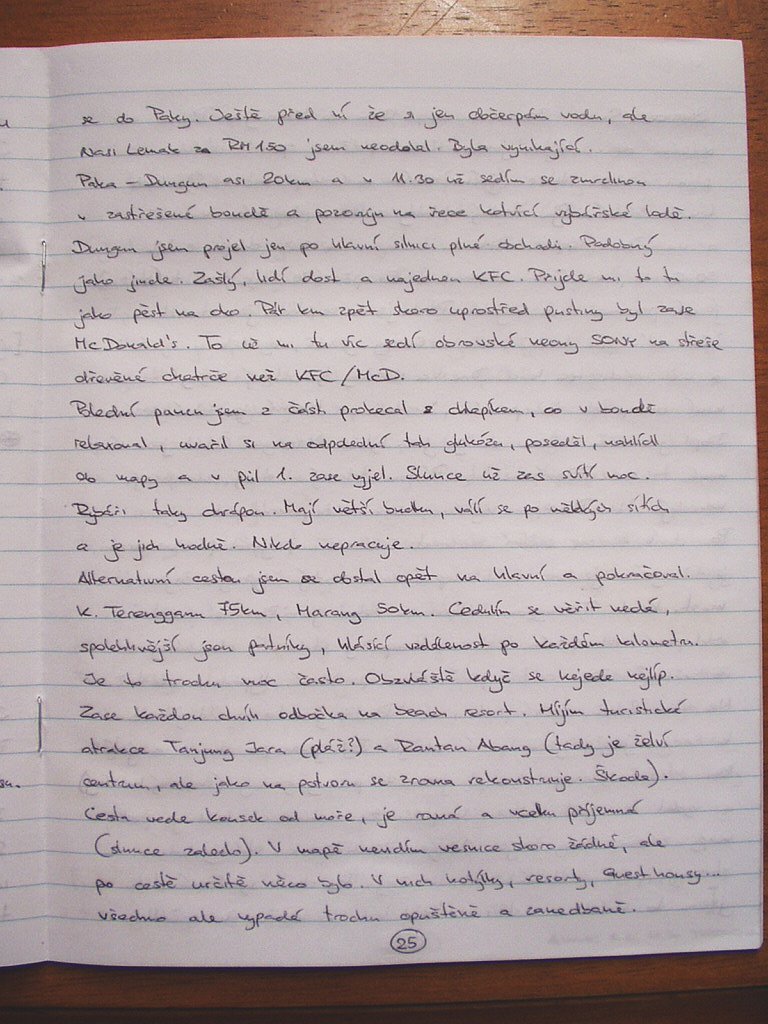 se do Paky. Ještě před ní že si jen občerpám vodu, ale
Nasi Lemak za RM 150 jsem neodolal. Byla vynikající.
Paka – Dungun asi 20km a v 11.30 už sedím se zmrzlinou
v zastřešené boudě a pozoruju na řece kotvící rybářské lodě.
Dungun jsem projel jen po hlavní silnici plné obchodů. Podobný
jako jinde. Zašlý, lidí dost a najednou KFC. Přijde mi to tu
jako pěst na oko. Pár km zpět skoro uprostřed pustiny byl zase
McDonald's. To už mi tu víc sedí obrovské neony SONY na střeše
dřevěné chatrče než KFC/McD.
Polední pauzu jsem z části prokecal s chlápkem, co v boudě
relaxoval, uvařil si na odpolední tah glukózu, poseděl, nahlídl
do mapy a v půl 1. zase vyjel. Slunce už zas svítí moc.
Rybáři taky chrápou. Mají větší budku, válí se po nějakých sítích
a je jich hodně. Nikdo nepracuje.
Alternativní cestou jsem se dostal opět na hlavní a pokračoval.
K. Terengganu 75km, Marang 50km. Cedulím se věřit nedá,
spolehlivější jsou patníky, hlásící vzdálenost po každém kilometru.
Je to trochu moc často. Obzvláště když se nejede nejlíp.
Zase každou chvíli odbočka na beach resort. Míjím turistické
atrakce Tanjung Jara (pláž?) a Rantau Abang (tady je želví
centrum, ale jako na potvoru se zrovna rekonstruuje. Škoda).
Cesta vede kousek od moře, je rovná a vcelku příjemná
(slunce zalezlo). V mapě nevidím vesnice skoro žádné, ale
po cestě určitě něco bylo. V nich hotýlky, resorty, Guest housy...
všechno ale vypadá trochu opuštěně a zanedbaně.
25